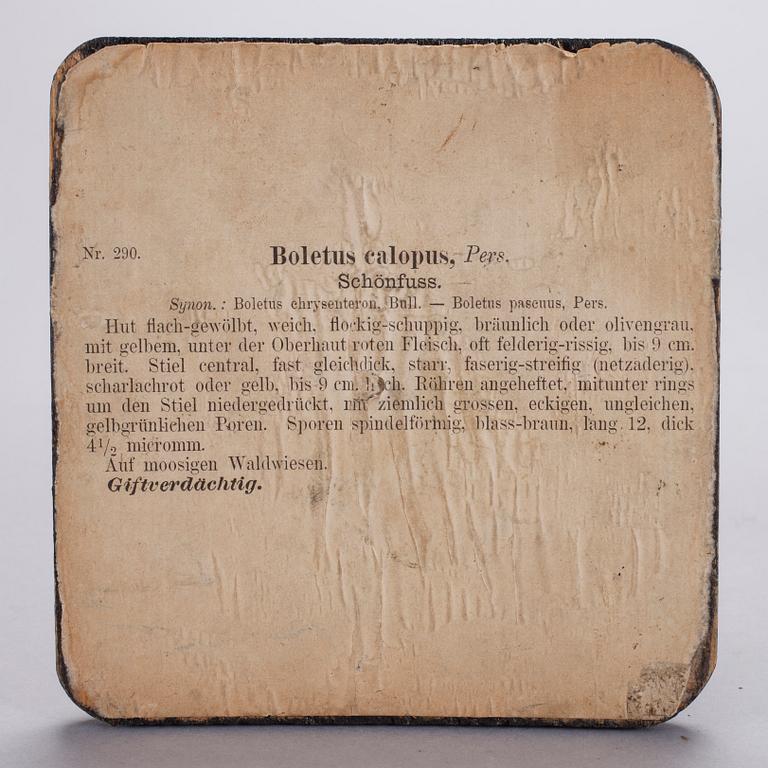 Nr. 290.
Boletus calopus, Pers.
Schönfuss.
Synon.: Boletus chrysenteron, Bull. — Boletus pascuus, Pers.
Hut flach-gewölbt, weich, flockig-schuppig, bräunlich oder olivengrau,
mit gelbem, unter der Oberhaut roten Fleisch, oft felderig-rissig, bis 9 cm.
breit. Stiel central, fast gleichdick, starr, faserig-streifig (netzaderig),
scharlachrot oder gelb, bis 9 cm. hoch. Röhren angeheftet, mitunter rings
um den Stiel niedergedrückt, mit ziemlich grossen, eckigen, ungleichen,
gelbgrünlichen Poren. Sporen spindelförmig, blass-braun, lang 12, dick
4½ micromm.
Auf moosigen Waldwiesen.
Giftverdächtig.